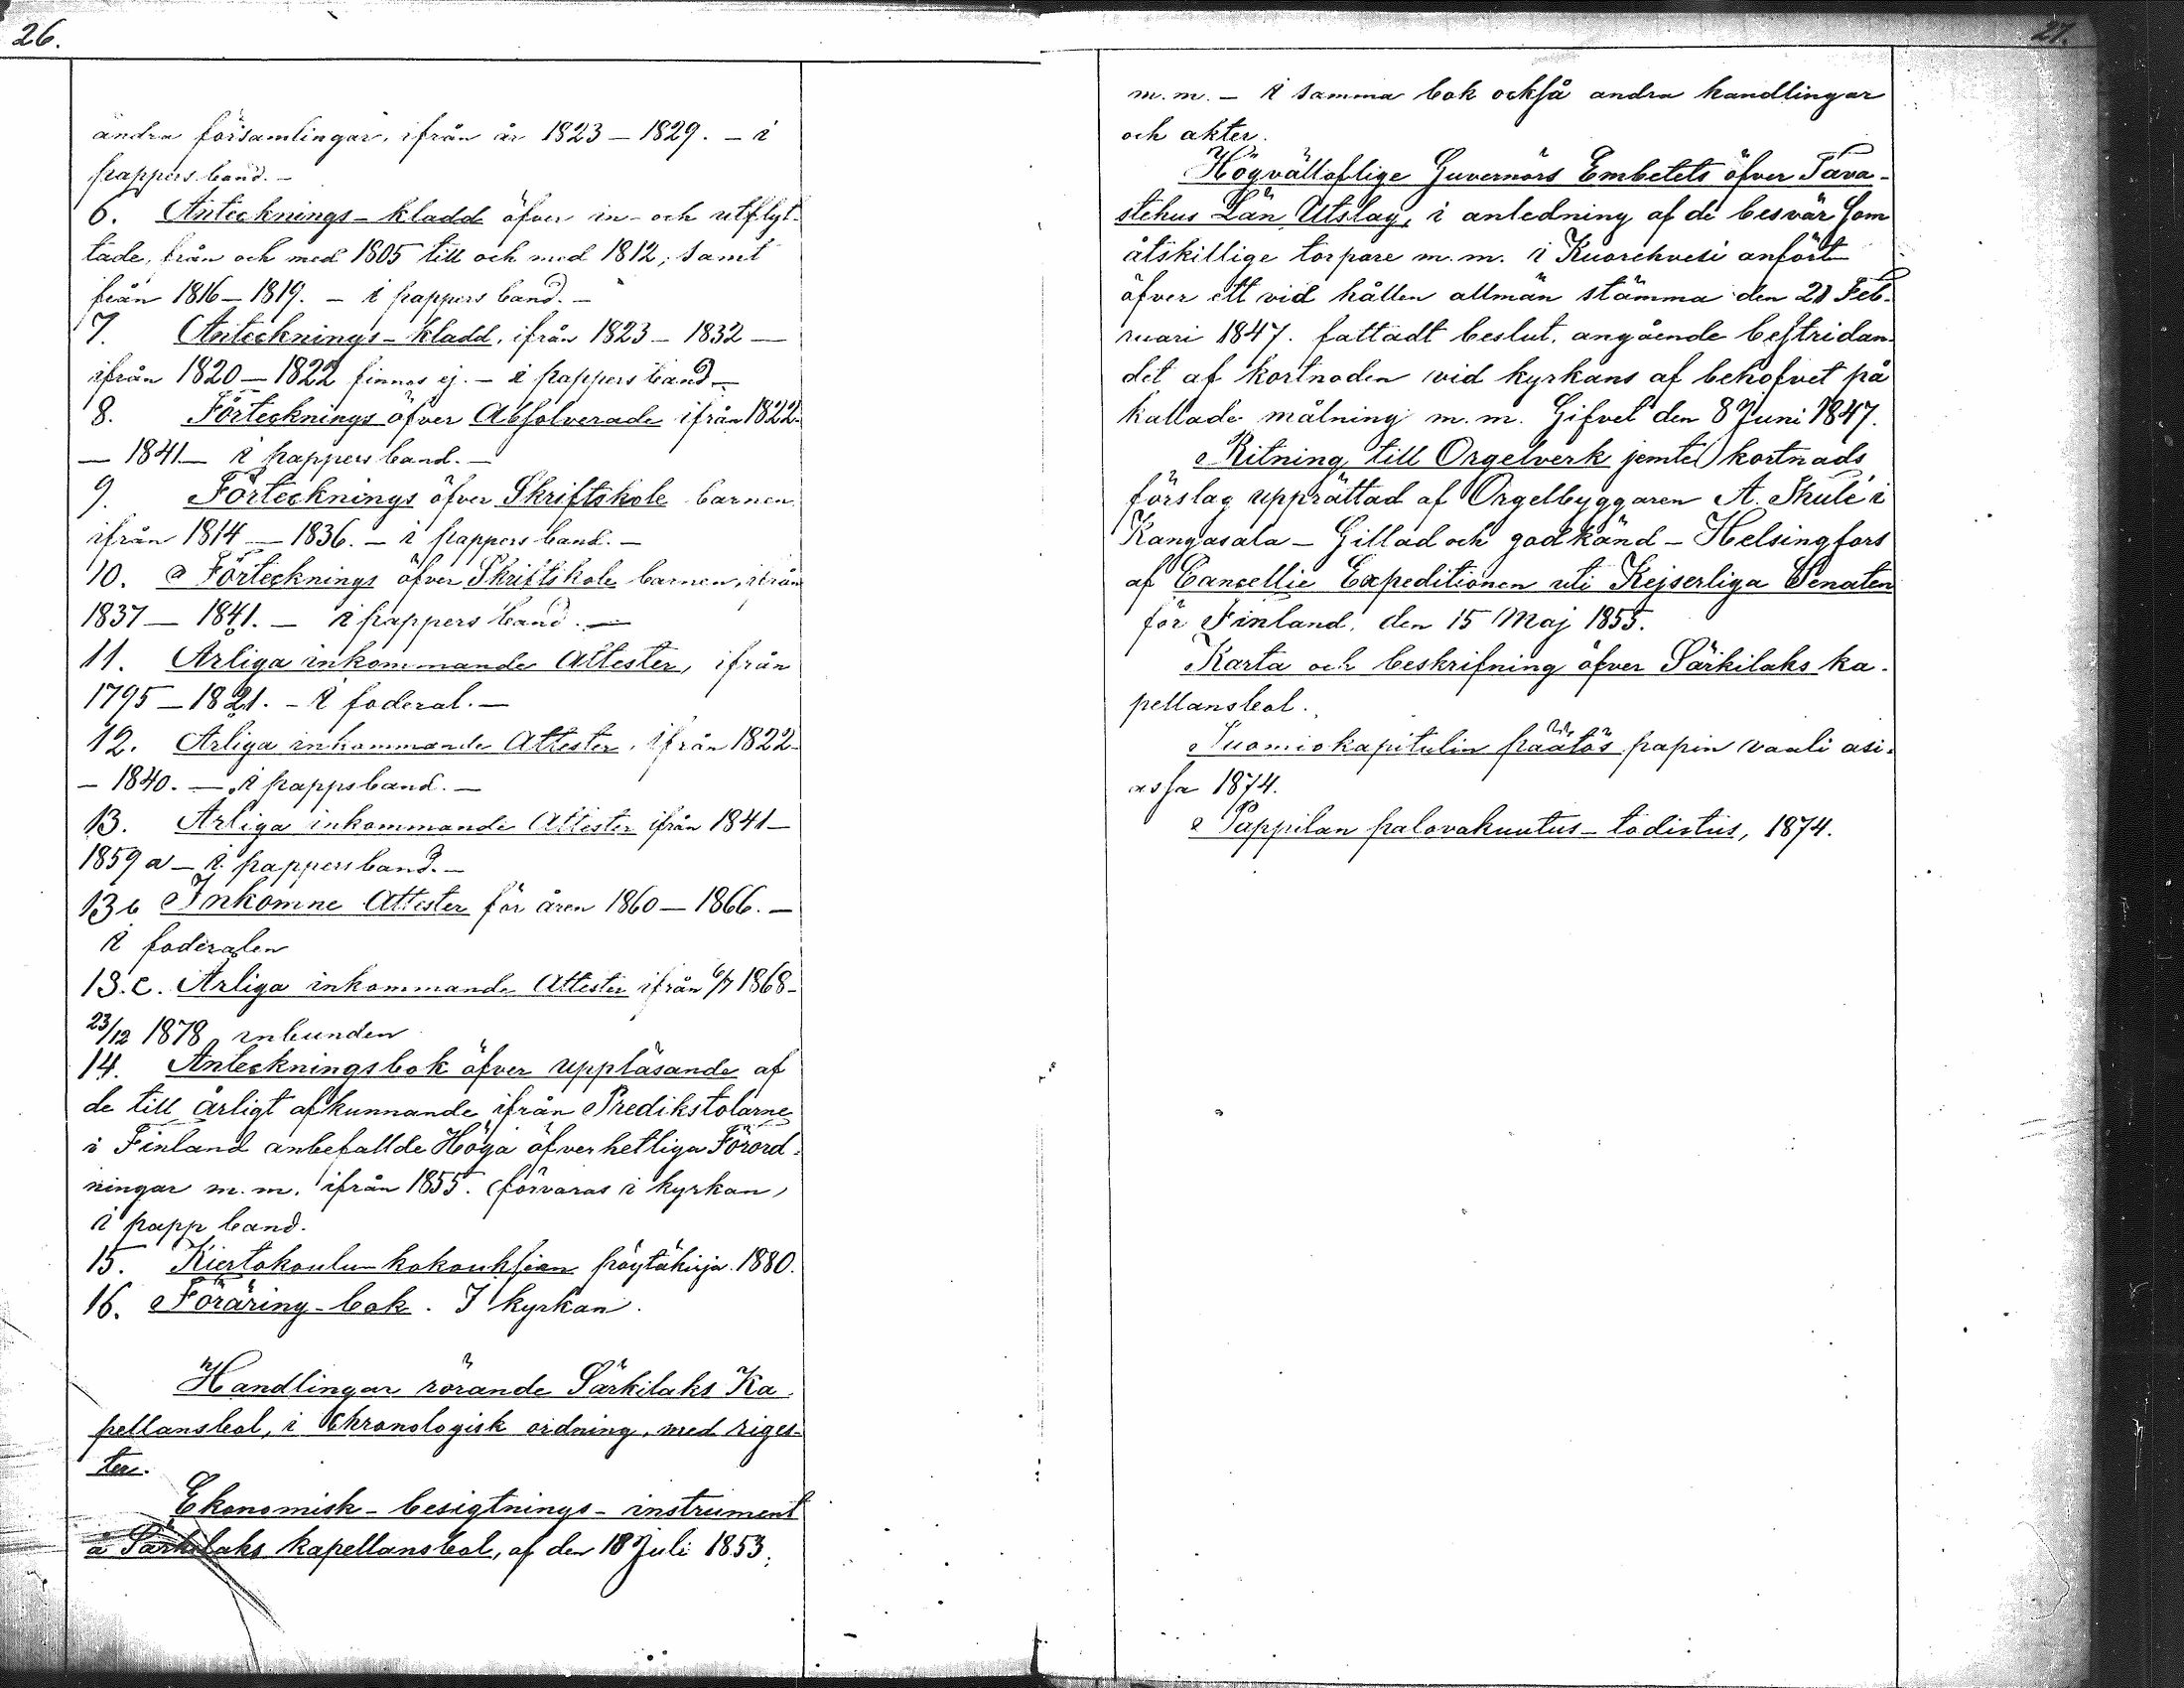 26.
andra församlingar, ifrån år 1823 – 1829. – i
pappers band. –
6. Antecknings – kladd öfver in- och utflyt-
tade, från och med 1805 till och med 1812; samt
från 1816 – 1819. – i pappers band. –
7. Antecknings – kladd, ifrån 1823 – 1832 –
ifrån 1820 – 1822 finnes ej. – i pappers band –
8. Förtecknings öfver Absolverade ifrån 1822-
– 1841 – i pappers band. –
9. Förtecknings öfver Skriftskole barnen
ifrån 1814 – 1836. – i pappers band. –
10. Förtecknings öfver Skriftskole barnen, ifrån
1837 – 1841. – i pappers band. –
11. Årliga inkommande Attester, ifrån
1795 – 1821. – i foderal. –
12. Årliga inkommande Attester, ifrån 1822-
– 1840. – i pappsband. –
13. Årliga inkommande Attester ifrån 1841 –
1859 a – i pappersband. –
13 b Inkomne Attester för åren 1860 – 1866. –
i foderalen
13. c. Årliga inkommande Attester ifrån 6/7 1868 –
23/12 1878 inbunden
14. Anteckningsbok öfver uppläsande af
de till årligt afkunnande ifrån Predikstolarne
i Finland anbefallde Höga öfverhetliga Förord-
ningar m. m. ifrån 1855. (förvaras i kyrkan)
i papp band.
15. Kiertokoulun kokouksien pöytäkirja. 1880.
16. Föräring – bok. I kyrkan.
Handlingar rörande Särkilaks Ka-
pellansbol, i Chronologisk ordning, med riges-
ter.
Ekonomisk – besigtnings – instrument
å Särkilaks kapellansbol, af den 18 Juli 1853;
27.
m. m. – i samma bok också andra handlingar
och akter.
Högvällaflige Guvernörs Embetets öfver Tava-
stehus Län Utslag, i anledning af de besvär som
åtskillige torpare m. m. i Kuorehvesi anfört
öfver ett vid hållen allmän stämma den 21 Feb-
ruari 1847. fattadt beslut, angående bestridan-
det af kostnoden vid kyrkans af behofvet på
kallade målning m. m. Gifvet den 8 Juni 1847.
Ritning till Orgelverk jemte kostnads
förslag upprättad af Orgelbyggaren A. Thulé i
Kangasala – Gillad och godkänd – Helsingfors
af Cancellie Expeditionen uti Kejserliga Senaten
för Finland, den 15 Maj 1855.
Karta och beskrifning öfver Särkilaks ka-
pellansbol.
Tuomiokapitulin päätös papin vaali asi-
assa 1874.
Pappilan palovakuutus – todistus, 1874.